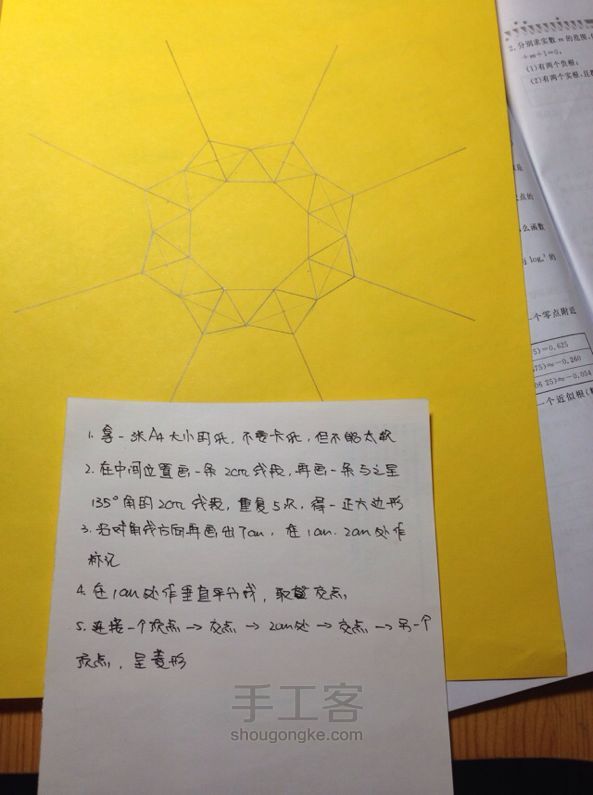 2. 分别求实数 m 的范围,
+m+1=0:
(1)有两个负根;
(2)有两个实根,且
点的
么函数
与 log
一个零点附近
5)=0.625
75)≈-0.260
06 25)≈-0.054
一个近似根(
1. 拿一张A4大小的纸,不要卡纸,但不能太软
2. 在中间位置画一条2cm线段,再画一条与之呈
135°角的2cm线段,重复5次,得一正六边形
3. 沿对角线方向再画出7cm,在1cm、2cm处作
标记
4. 在1cm处作垂直平分线,取 交点
5. 连接一个顶点→交点→2cm处→交点→另一个
顶点,呈菱形
手工客
shougongke.com